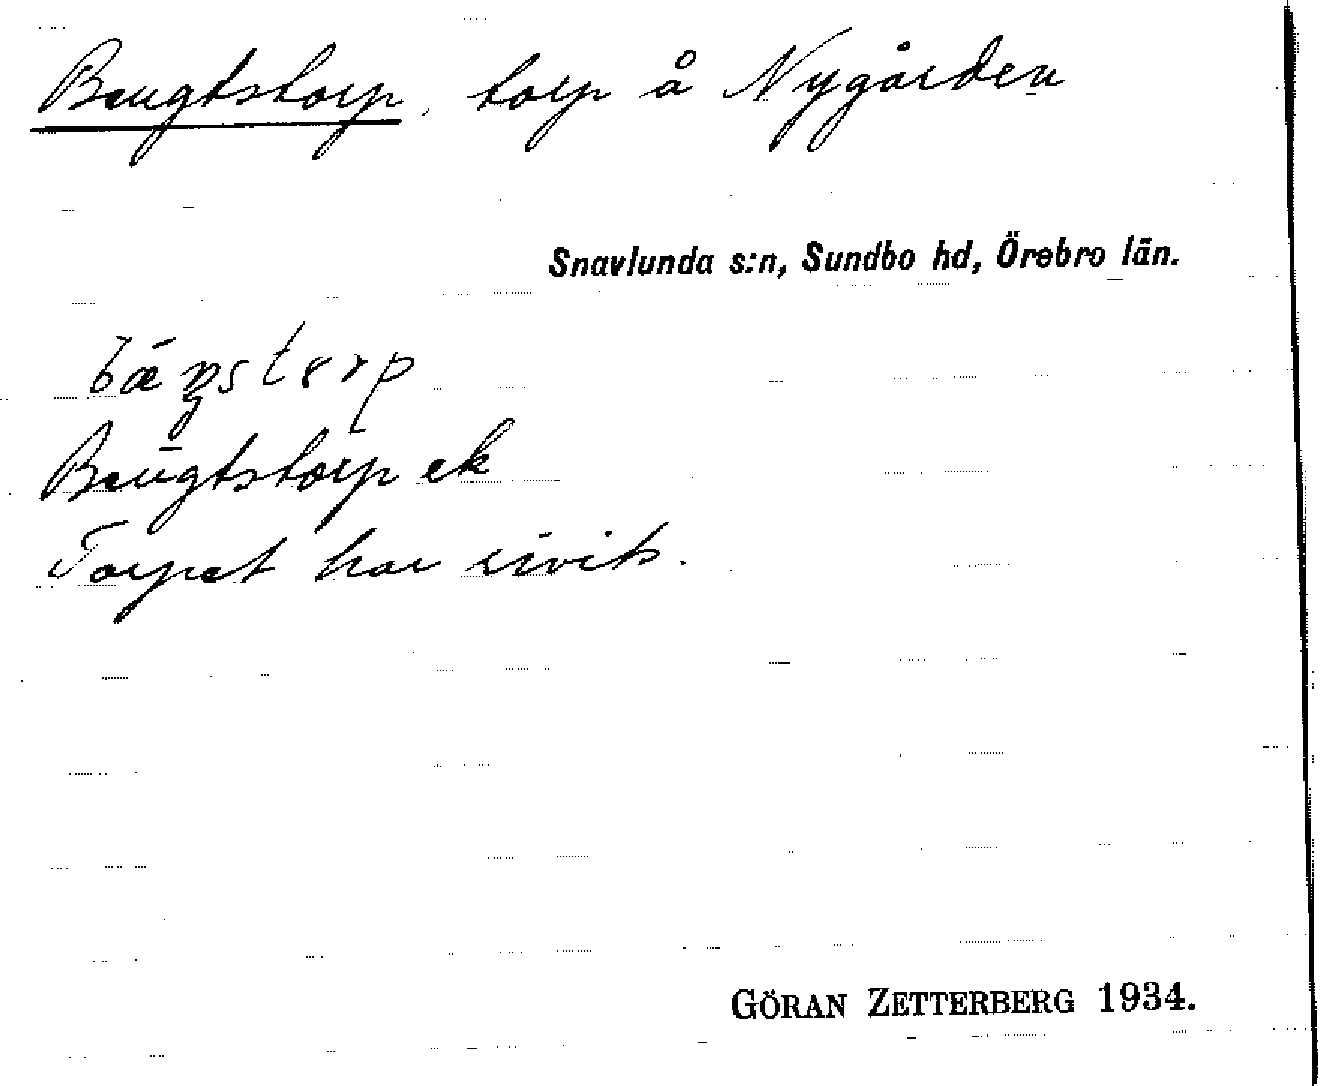 Bengtstorp, torp å Nygården
Snavlunda s:n, Sundbo hd, Örebro län.
Bengtstorp ek
Torpet har rivits.
GÖRAN ZETTERBERG 1934.